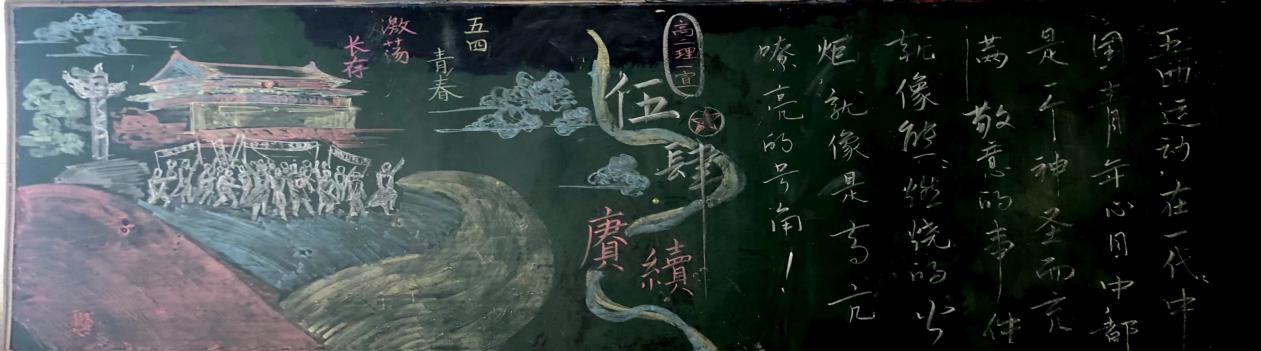 五四运动,在一代々中
国青年心目中都
是一个神圣而充
满敬意的事件
就像熊々燃烧的火
炬就像是高亢
嘹亮的号角!
高二理一宣
伍肆
赓續
五四
青春
激荡
长存